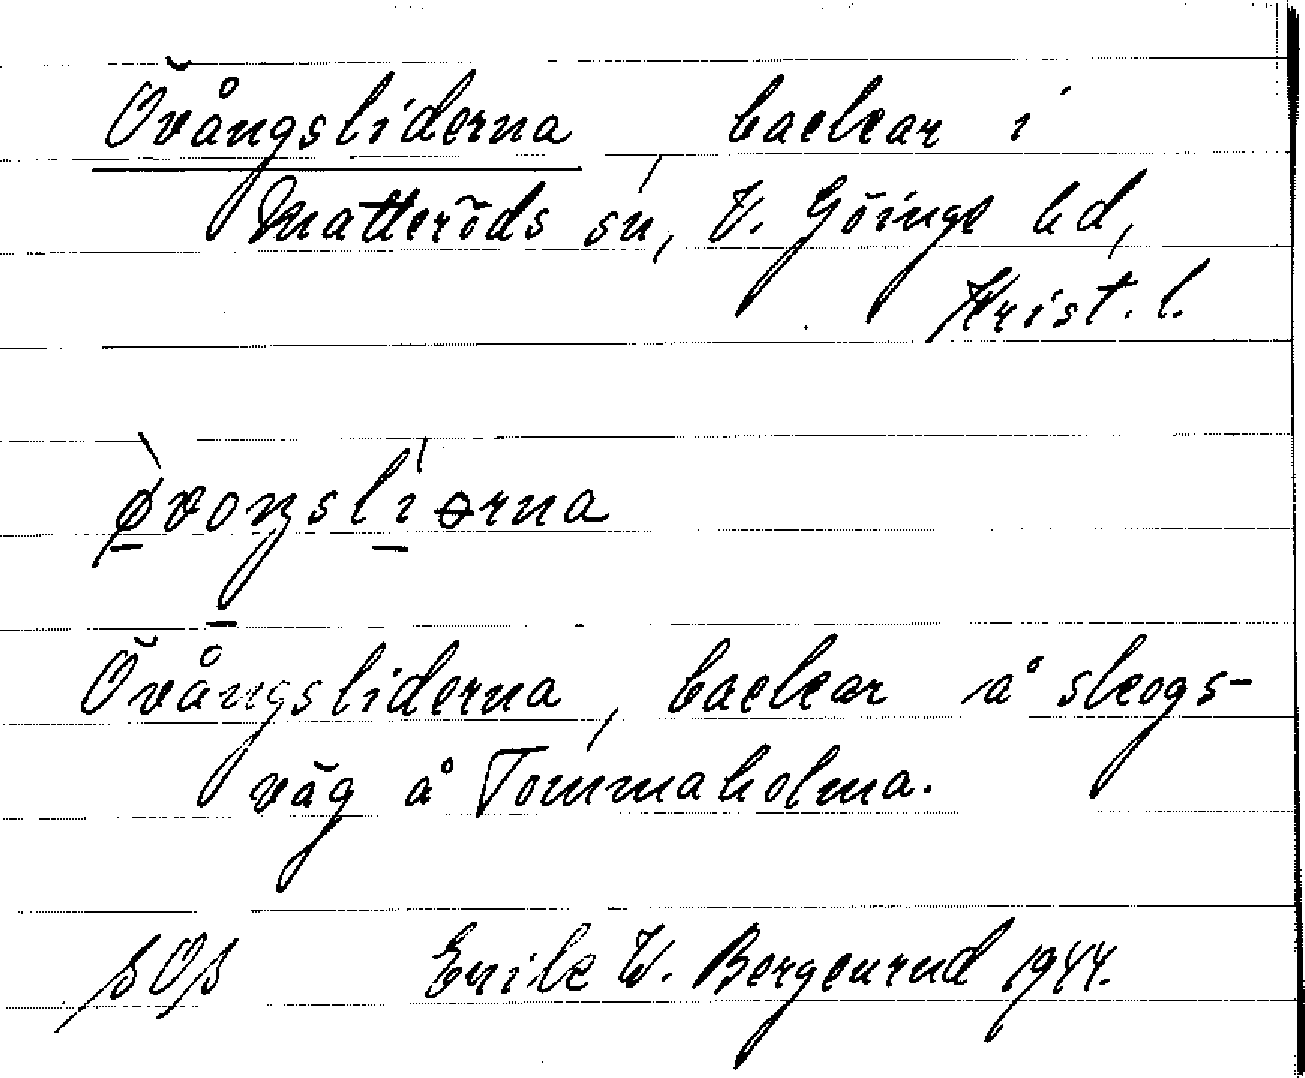 Övångsliderna, backar i
Matteröds sn, V. Göinge hd,
Krist. l.
øvoŋslíɵrna
Övångsliderna, backar å skogs-
väg å Tommaholma.
Erik W. Bergenrud 1944.